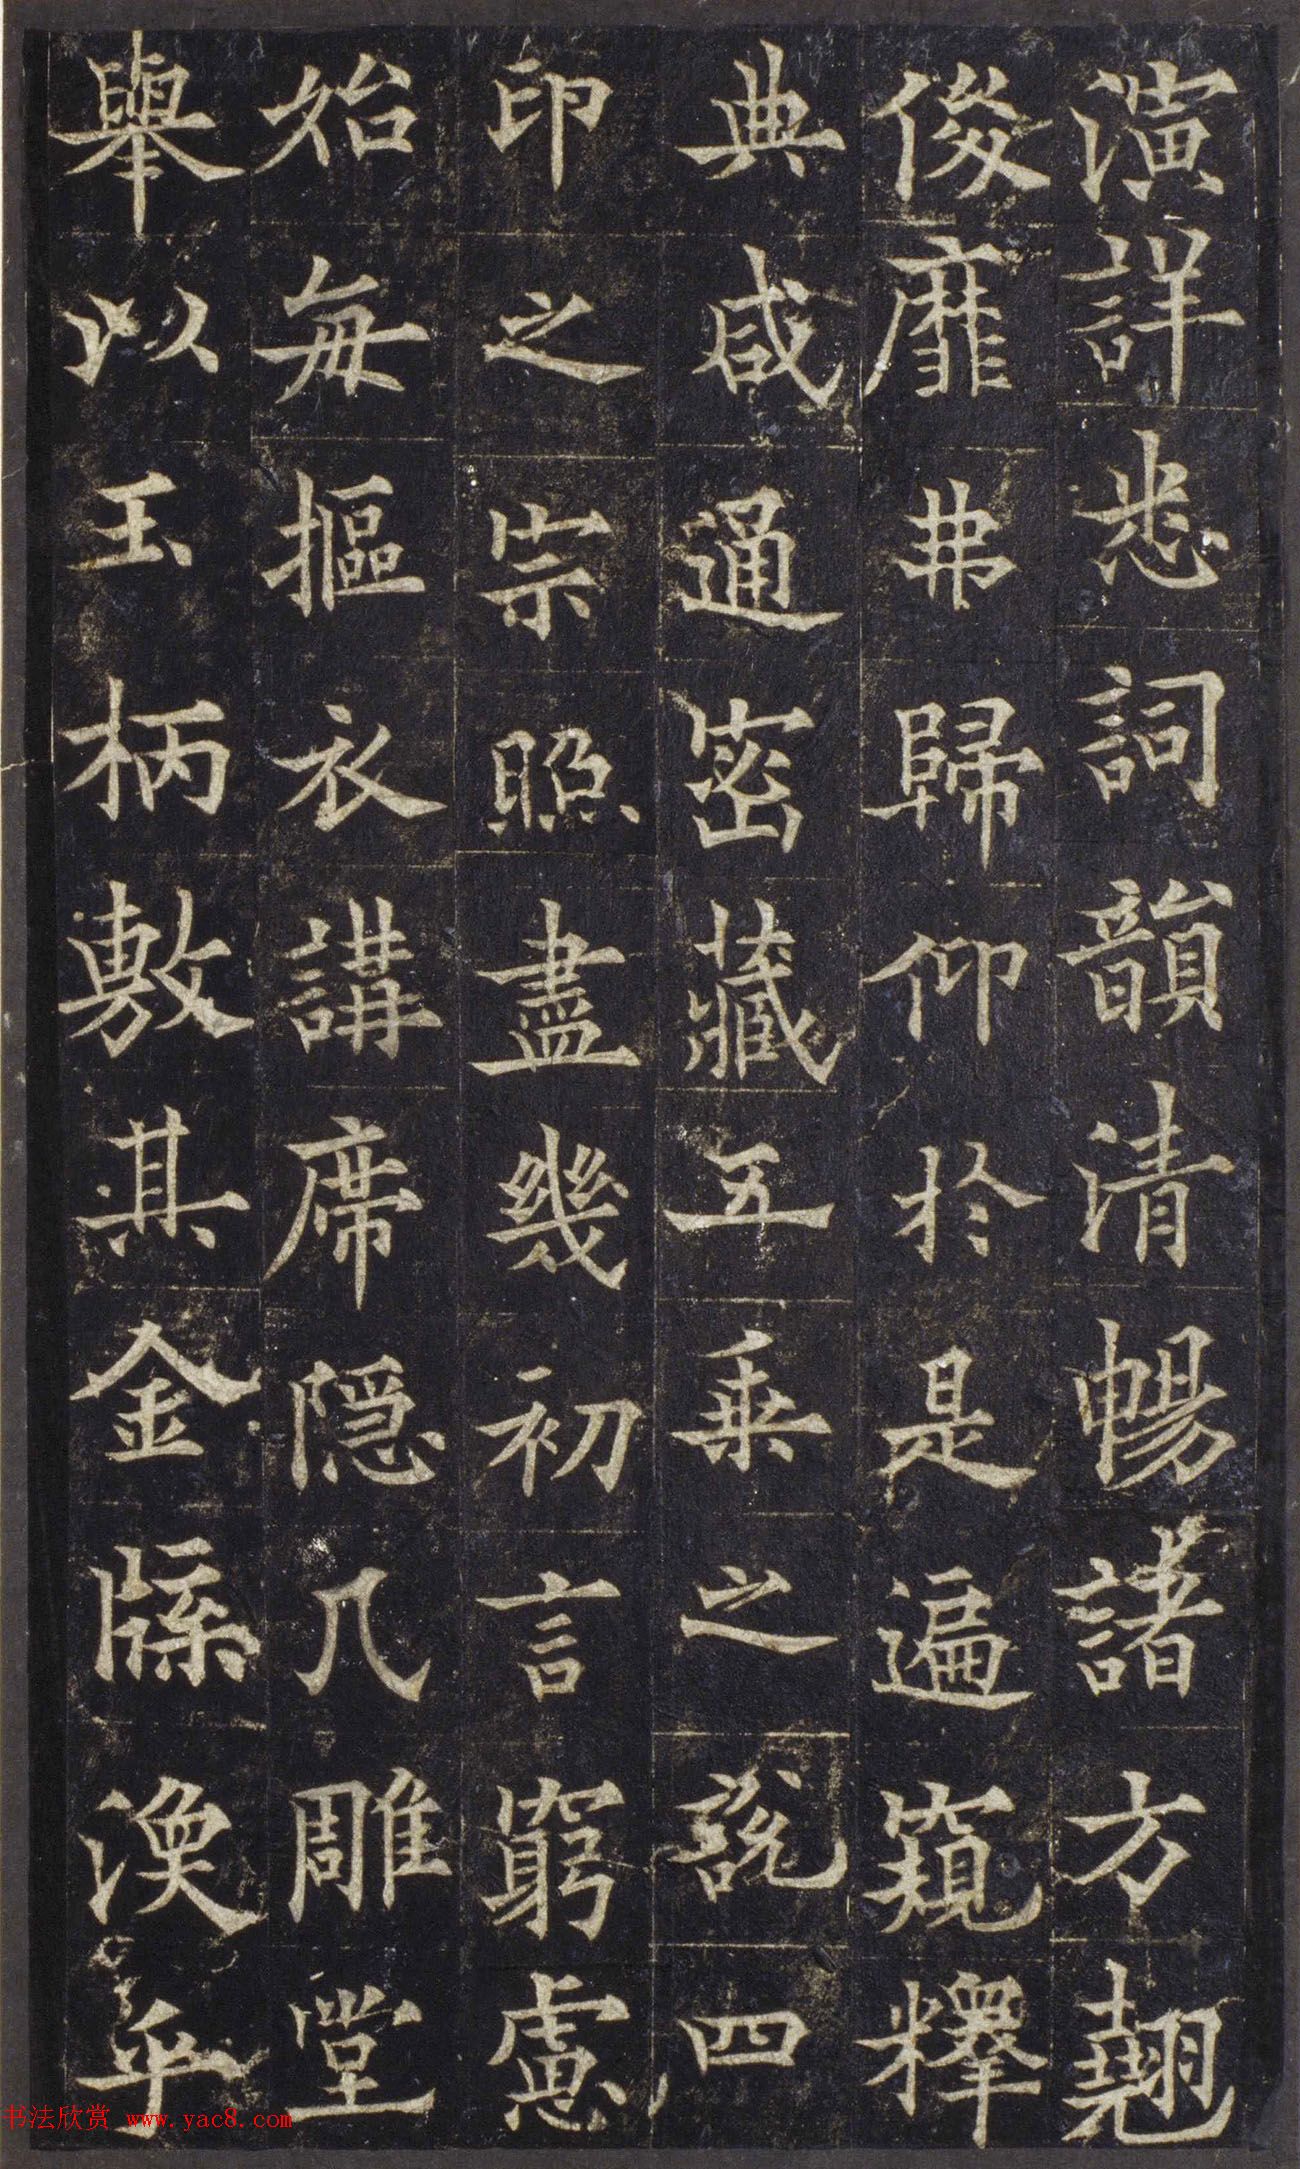 演詳悉詞韻清暢諸方翹
俊靡弗歸仰於是遍窺釋
典咸通密藏五乘之說四
印之宗照盡幾初言窮慮
始每摳衣講席隱几雕堂
舉以玉柄敷其金牒渙乎
书法欣赏 www.yac8.com